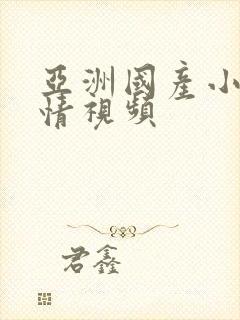 亞洲國產小
情視頻
君鑫